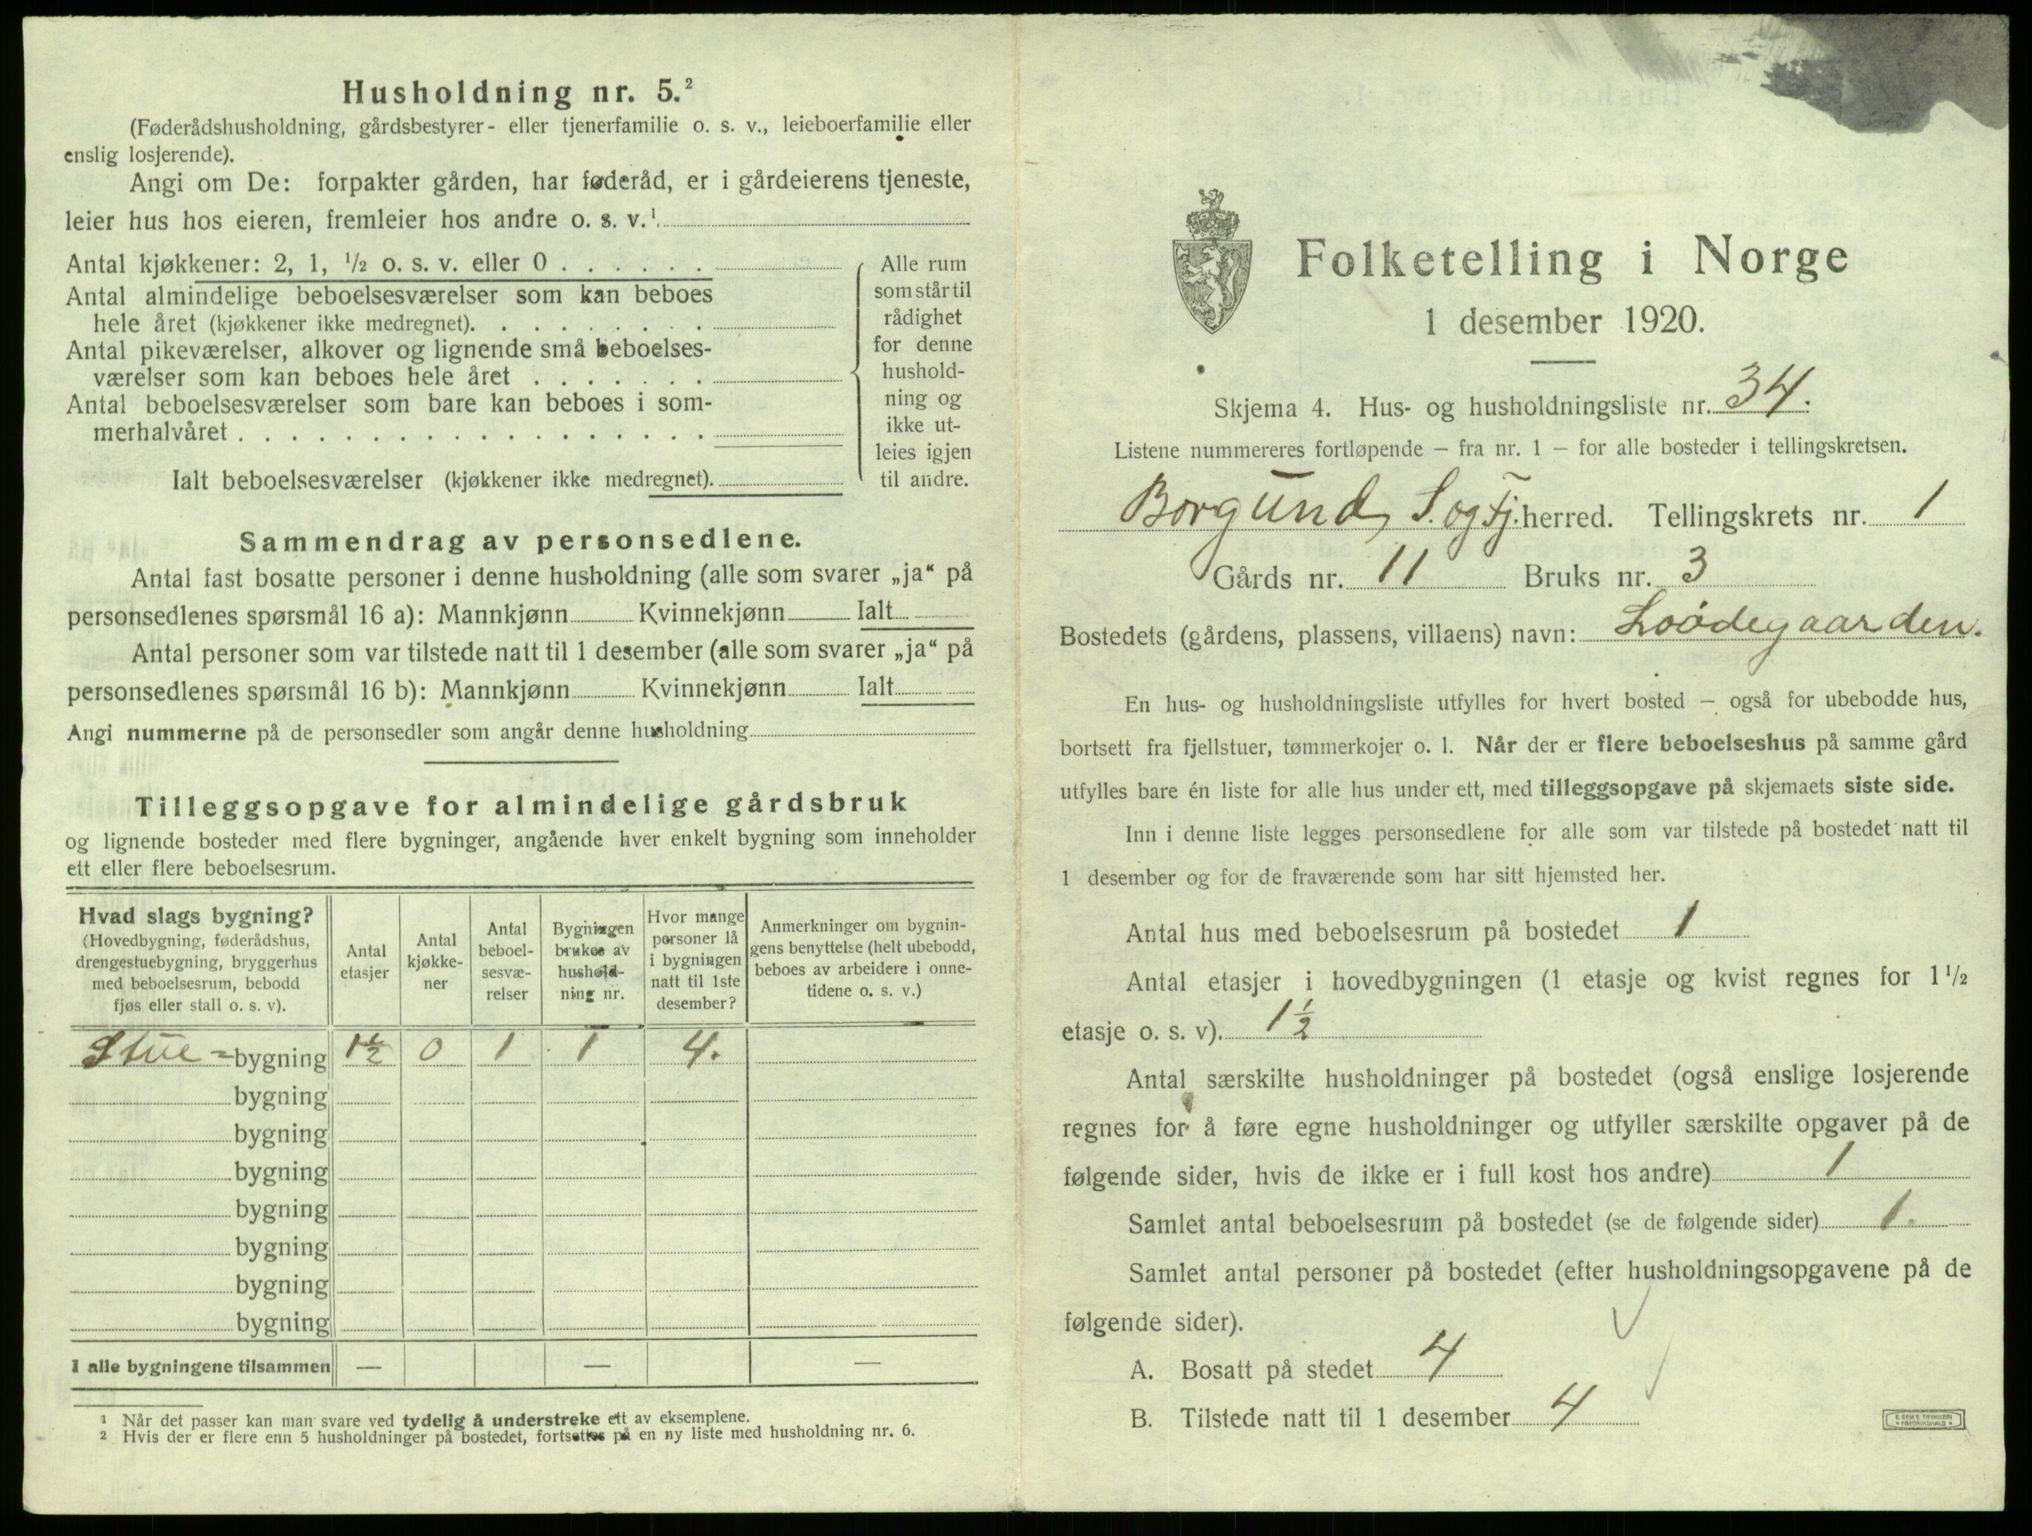 Husholdning nr. 5.²
(Føderådshusholdning, gårdsbestyrer- eller tjenerfamilie o. s. v., leieboerfamilie eller
enslig losjerende).
Angi om De: forpakter gården, har føderåd, er i gårdeierens tjeneste,
leier hus hos eieren, fremleier hos andre o. s. v.¹
Antal kjøkkener: 2, 1, ½ o. s. v. eller 0 . . . . . .
Antal almindelige beboelsesværelser som kan beboes
hele året (kjøkkener ikke medregnet). . . . . . . . .
Antal pikeværelser, alkover og lignende små beboelses-
værelser som kan beboes hele året . . . . . . .
Antal beboelsesværelser som bare kan beboes i som-
merhalvåret . . . . . . . . . . . . . . . . . .
Ialt beboelsesværelser (kjøkkener ikke medregnet).
Alle rum
som står til
rådighet
for denne
hushold-
ning og
ikke ut-
leies igjen
til andre.
Sammendrag av personsedlene.
Antal fast bosatte personer i denne husholdning (alle som svarer „ja“ på
personsedlenes spørsmål 16 a): Mannkjønn Kvinnekjønn Ialt
Antal personer som var tilstede natt til 1 desember (alle som svarer „ja“ på
personsedlenes spørsmål 16 b): Mannkjønn Kvinnekjønn Ialt
Angi nummerne på de personsedler som angår denne husholdning
Tilleggsopgave for almindelige gårdsbruk
og lignende bosteder med flere bygninger, angående hver enkelt bygning som inneholder
ett eller flere beboelsesrum.
Hvad slags bygning?
(Hovedbygning, føderådshus,
drengestuebygning, bryggerhus
med beboelsesrum, bebodd
fjøs eller stall o. s. v).
Antal
etasjer
Antal
kjøkke-
ner
Antal
beboel-
sesvæ-
relser
Bygningen
brukes av
hushold-
ning nr.
Hvor mange
personer lå
i bygningen
natt til 1ste
desember?
Anmerkninger om bygnin-
gens benyttelse (helt ubebodd,
beboes av arbeidere i onne-
tidene o. s. v.)
Stue=bygning 1½ 0 1 1 4.
bygning
bygning
bygning
bygning
bygning
bygning
bygning
I alle bygningene tilsammen — — —
¹ Når det passer kan man svare ved tydelig å understreke ett av eksemplene.
² Hvis der er flere enn 5 husholdninger på bostedet, fortsettes på en ny liste med husholdning nr. 6.
Folketelling i Norge
1 desember 1920.
Skjema 4. Hus- og husholdningsliste nr. 34.
Listene nummereres fortløpende — fra nr. 1 — for alle bosteder i tellingskretsen.
Borgund, S. og Fj. herred. Tellingskrets nr. 1
Gårds nr. 11 Bruks nr. 3
Bostedets (gårdens, plassens, villaens) navn: Loödegaarden.
En hus- og husholdningsliste utfylles for hvert bosted — også for ubebodde hus,
bortsett fra fjellstuer, tømmerkojer o. l. Når der er flere beboelseshus på samme gård
utfylles bare én liste for alle hus under ett, med tilleggsopgave på skjemaets siste side.
Inn i denne liste legges personsedlene for alle som var tilstede på bostedet natt til
1 desember og for de fraværende som har sitt hjemsted her.
Antal hus med beboelsesrum på bostedet 1
Antal etasjer i hovedbygningen (1 etasje og kvist regnes for 1 1/2
etasje o. s. v). 1½
Antal særskilte husholdninger på bostedet (også enslige losjerende
regnes for å føre egne husholdninger og utfyller særskilte opgaver på de
følgende sider, hvis de ikke er i full kost hos andre) 1
Samlet antal beboelsesrum på bostedet (se de følgende sider) 1.
Samlet antal personer på bostedet (efter husholdningsopgavene på de
følgende sider).
A. Bosatt på stedet 4
B. Tilstede natt til 1 desember 4
E. SEM'S TRYKKERI
FREDRIKSHALD